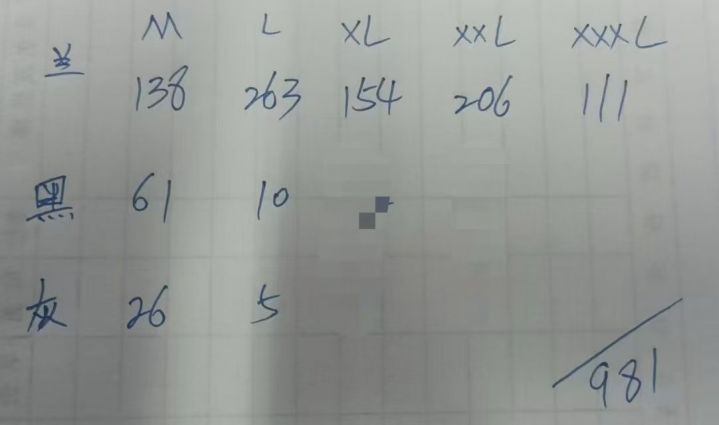 M L XL XXL XXXL
兰 138 263 154 206 111
黑 61 10
灰 26 5
981